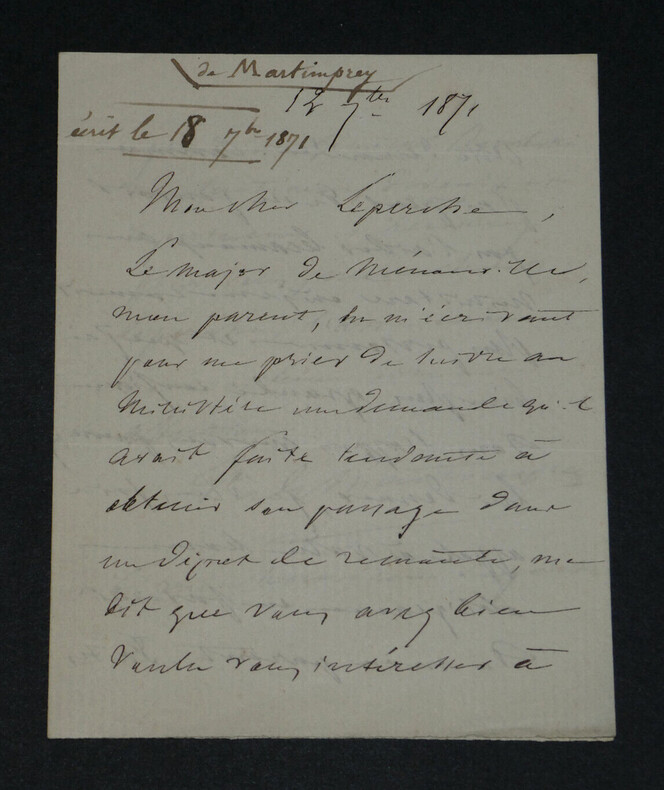 de Martimprey
12 7bre 1871
écrit le 18 7bre 1871
Mon cher Leperche,
Le major de Ménonville,
mon parent, en m'écrivant
pour me prier de suivre au
Ministère une demande qu'il
avait faite tendante à
obtenir son passage dans
un dépot de remonte, me
dit que vous avez bien
voulu vous intéresser à